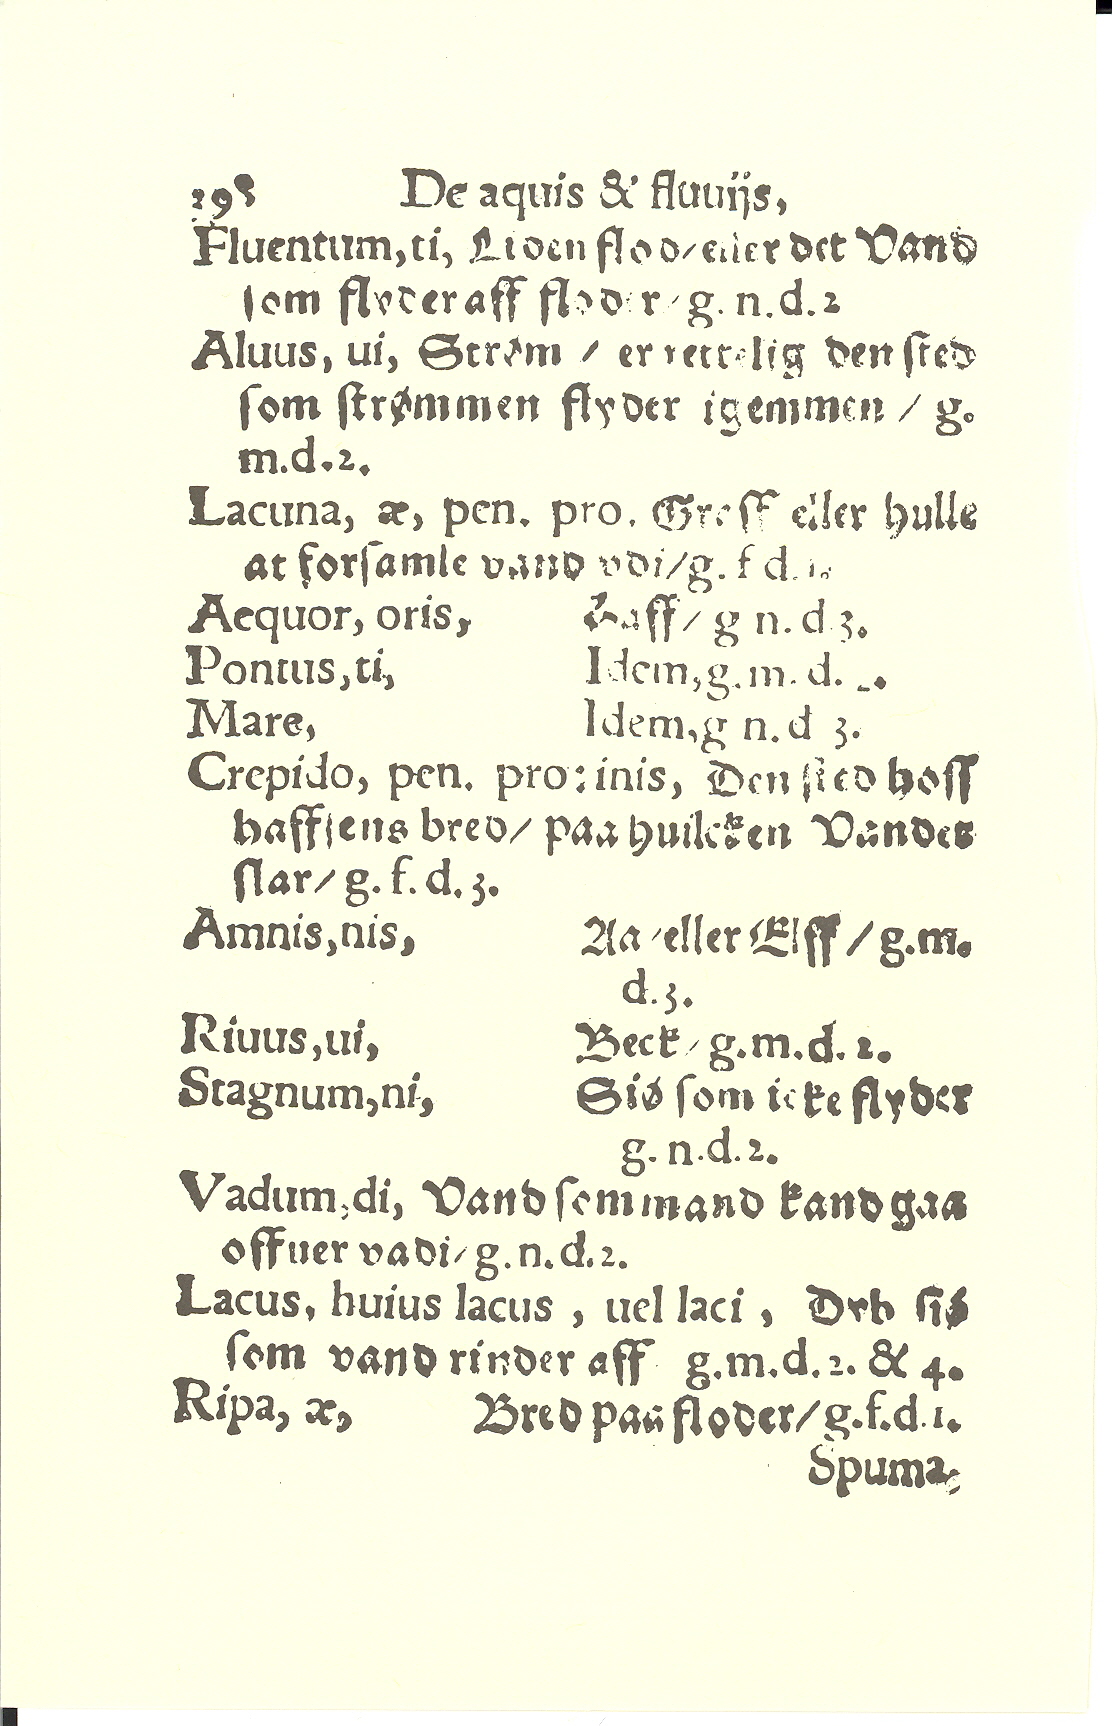 198 De aquis & fluuijs,
Fluentum, ti, Liden flod/ eller det Vand
som flyder aff floder / g. n. d. 2
Aluus, ui, Strøm / er rettelig den sted
som strømmen flyder igemmen / g.
m. d. 2.
Lacuna, æ, pen. pro. Greff eller hulle
at forsamle vand vdi/ g. f d. 1.
Aequor, oris, Haff / g n. d 3.
Pontus, ti, Idem, g. m. d.
Mare, Idem, g n. d 3.
Crepido, pen. pro: inis, Den sted hoff
haffsens bred/ paa huilcken Vandet
slar/ g. f. d. 3.
Amnis, nis, Aa /eller Elff / g. m.
d. 3.
Riuus, ui, Beck / g. m. d. 2.
Stagnum, ni, Siø som icke flyder
g. n. d. 2.
Vadum, di, Vand som mand kand gaa
offuer vadi/ g. n. d. 2.
Lacus, huius lacus , uel laci , Dyb siø
som vand rinder aff g. m. d. 2. & 4.
Ripa, æ, Bred paa floder/ g. f. d. 1.
Spuma,